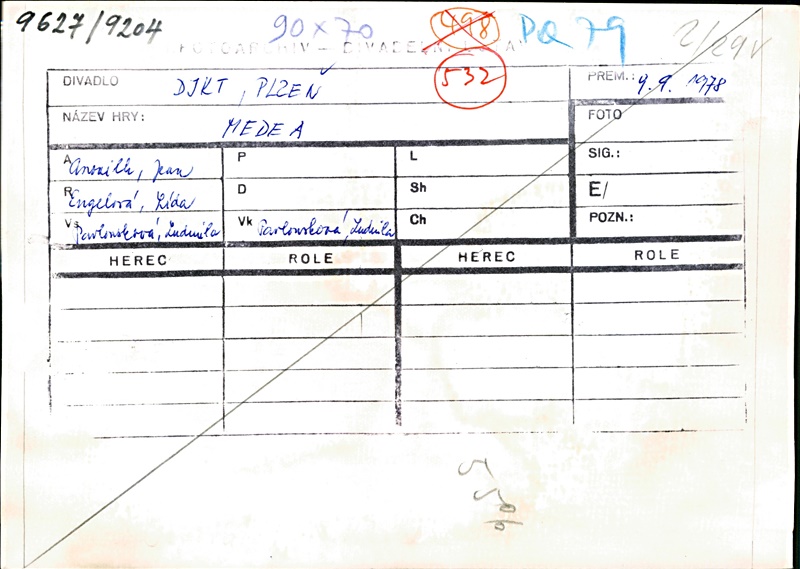 9627/9204 90 x 70 498 PQ 79 2/29v
FOTOARCHIV – DIVADELNÍ
532
DIVADLO DJKT, PLZEŇ PREM.: 9.9. 1978
NÁZEV HRY: MEDEA FOTO
A Anouilh, Jean P L SIG.:
R Engelová, Lída D Sh E/
Vs Pavlousková, Ludmila Vk Pavlousková, Ludmila Ch POZN.:
HEREC ROLE HEREC ROLE